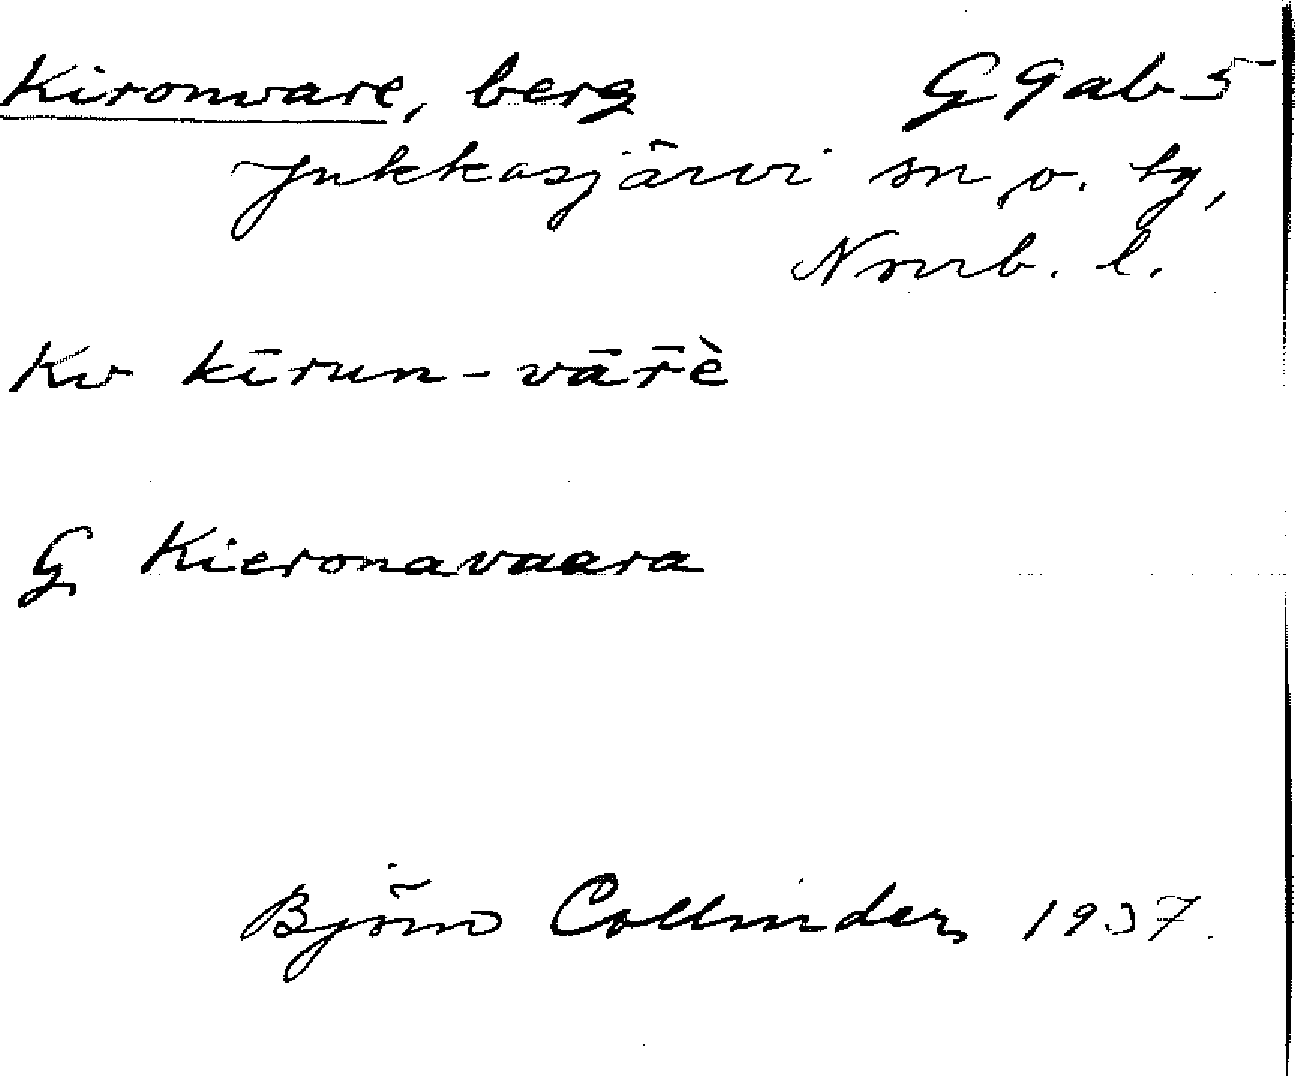 Kironvare, berg G 9 a b 5
Jukkasjärvi sn o. tg,
Nrrb. l.
Kv kīrun-vār̄è
G Kieronavaara
Björn Collinder 1937.